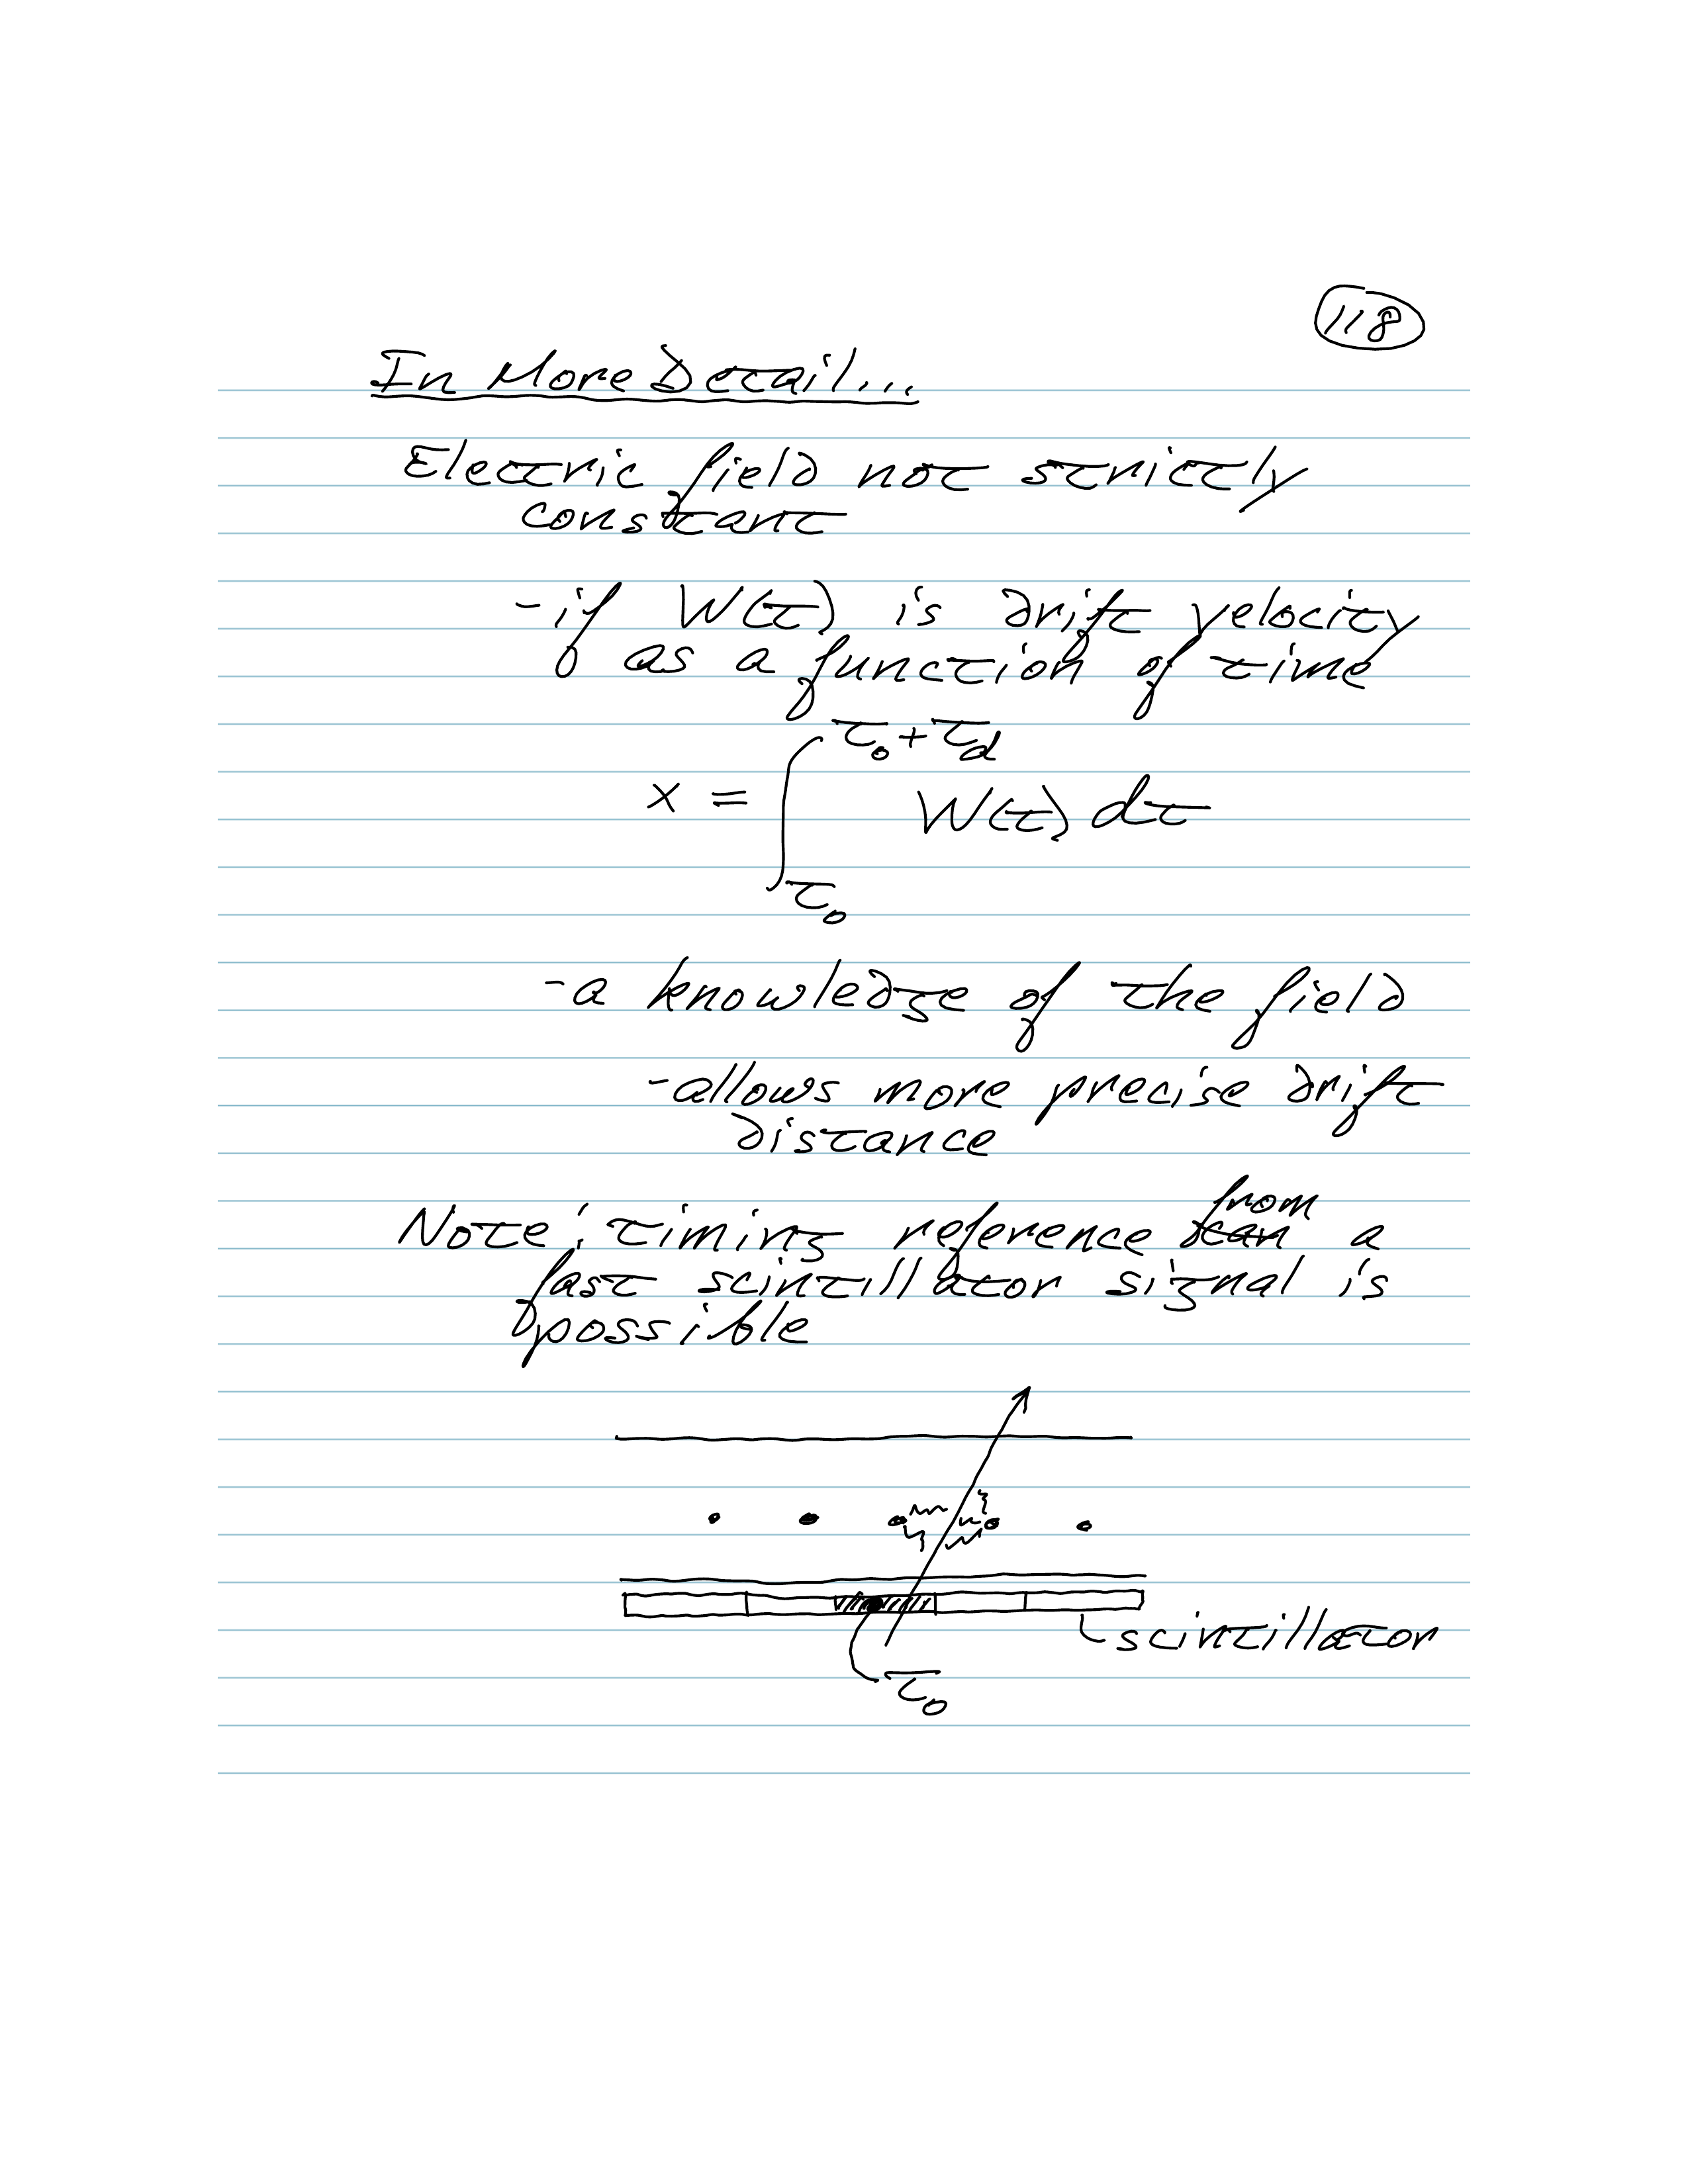 118
In More Detail...
Electric field not strictly
constant
- if W(t) is drift velocity
as a function of time
x = ∫_{t₀}^{t₀+t_d} W(t) dt
- a knowledge of the field
- allows more precise drift
distance
Note: timing reference from a
fast scintillator signal is
possible
scintillator
t₀